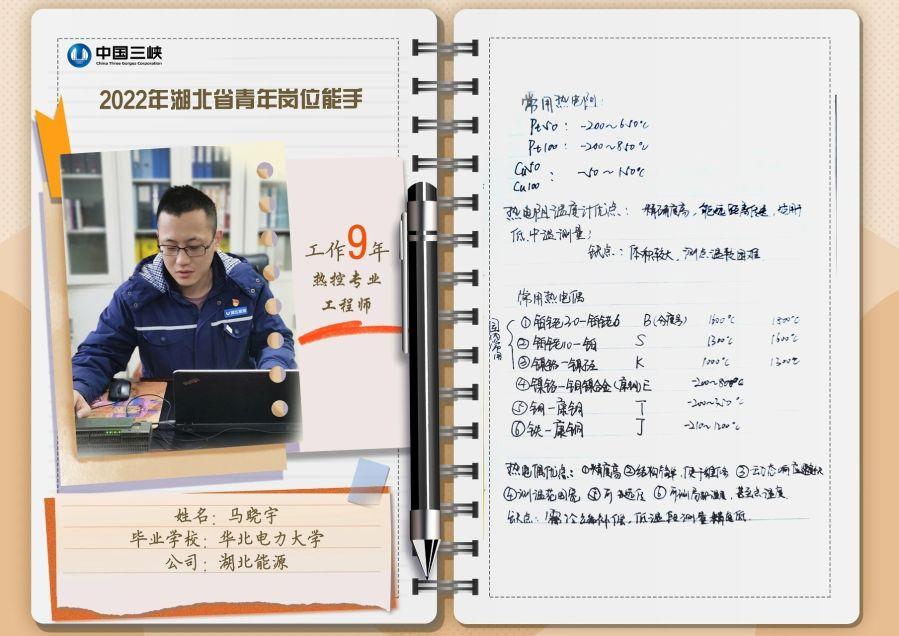 中国三峡
China Three Gorges Corporation
2022年湖北省青年岗位能手
工作9年
热控专业
工程师
姓名：马晓宇
毕业学校：华北电力大学
公司：湖北能源
常用热电阻：
Pt50： -200～650℃
Pt100： -200～850℃
Cu50
Cu100： -50～150℃
热电阻温度计优点： 精确度高，能远距离传送，适用
低、中温测量；
缺点：体积较大，测点温较困难
常用热电偶
① 铂铑30-铂铑6 B(分度号) 1600℃ 1800℃
② 铂铑10-铂 S 1300℃ 1600℃
③ 镍铬-镍硅 K 1000℃ 1300℃
④ 镍铬-铜镍合金(康铜) E -200～800℃
⑤ 铜-康铜 T
⑥ 铁-康铜 J -210～1200℃
热电偶优点：①精度高 ②结构简单，便于维修 ③动态响应速度快
④测温范围宽 ⑤ ⑥可测局部温度，甚至点温度
缺点：需冷端补偿，低温段测量精度低